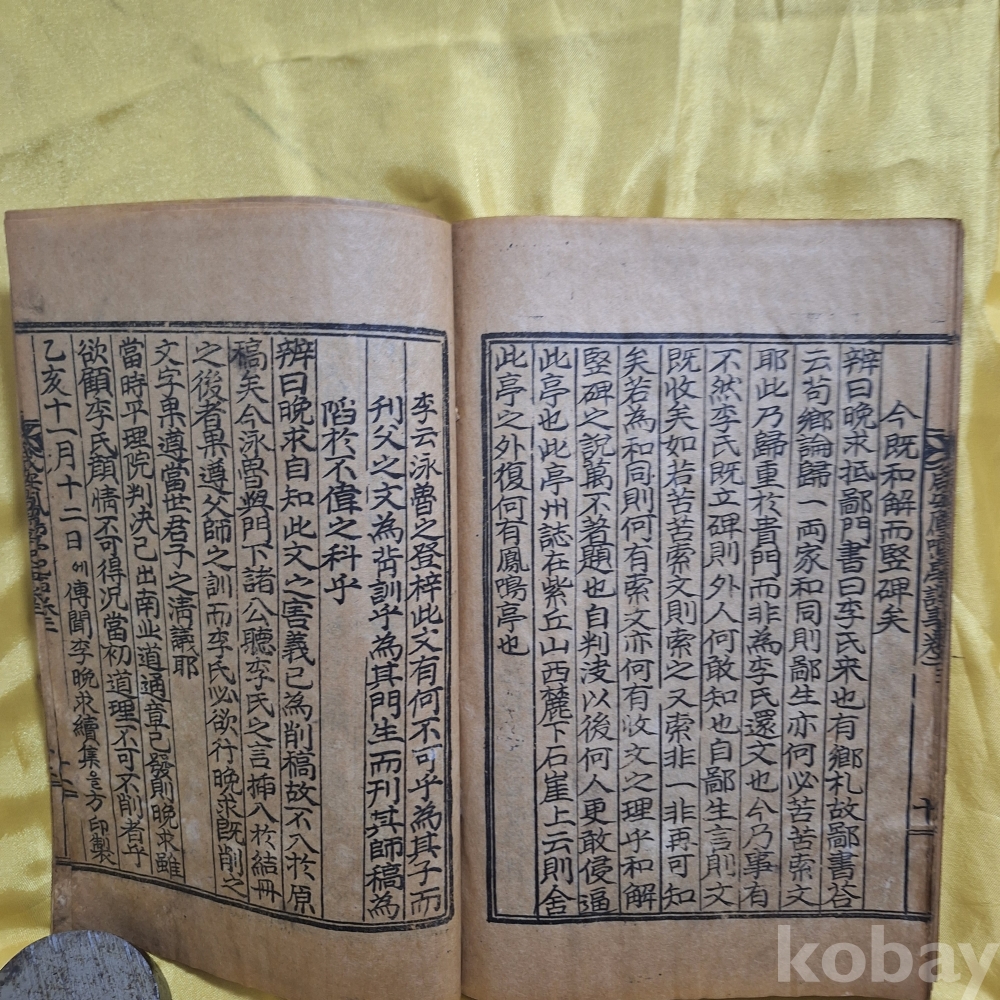 今既和解而竪碑矣
辨曰晩求抵鄙門書曰李氏来也有鄕札故鄙書荅
云苟鄕論歸一両家和同則鄙生亦何必苦苦索文
耶此乃歸重於書門而非為李氏還文也今乃事有
不然李氏既立碑則外人何敢知也自鄙生言則文
既收矣如若苦苦索文則索之又索非一非再可知
矣若為和同則何有索文亦何有收文之理乎和解
竪碑之説萬不著題也自判決以後何人更敢侵逼
此亭也此亭州誌在紫丘山西麓下石崖上云則舍
此亭之外復何有鳳鳴亭也
李云泳曽之登梓此文有何不可乎為其子而
刊父之文為背訓乎為其門生而刊其師稿為
陷於不偉之科乎
辨曰晩求自知此文之害義已為削稿故不入於原
稿矣今泳曽與門下諸公聽李氏之言揷入於結冊
之後者果遵父師之訓而李氏必欲行晩求既削之
文字果遵當世君子之淸議耶
當時平理院判决已出南北道通章已發則晩求雖
欲顧李氏顔情不可得况當初道理不可不削者乎
乙亥十一月十二日에傳聞李晩求續集을方印製
十
kobay